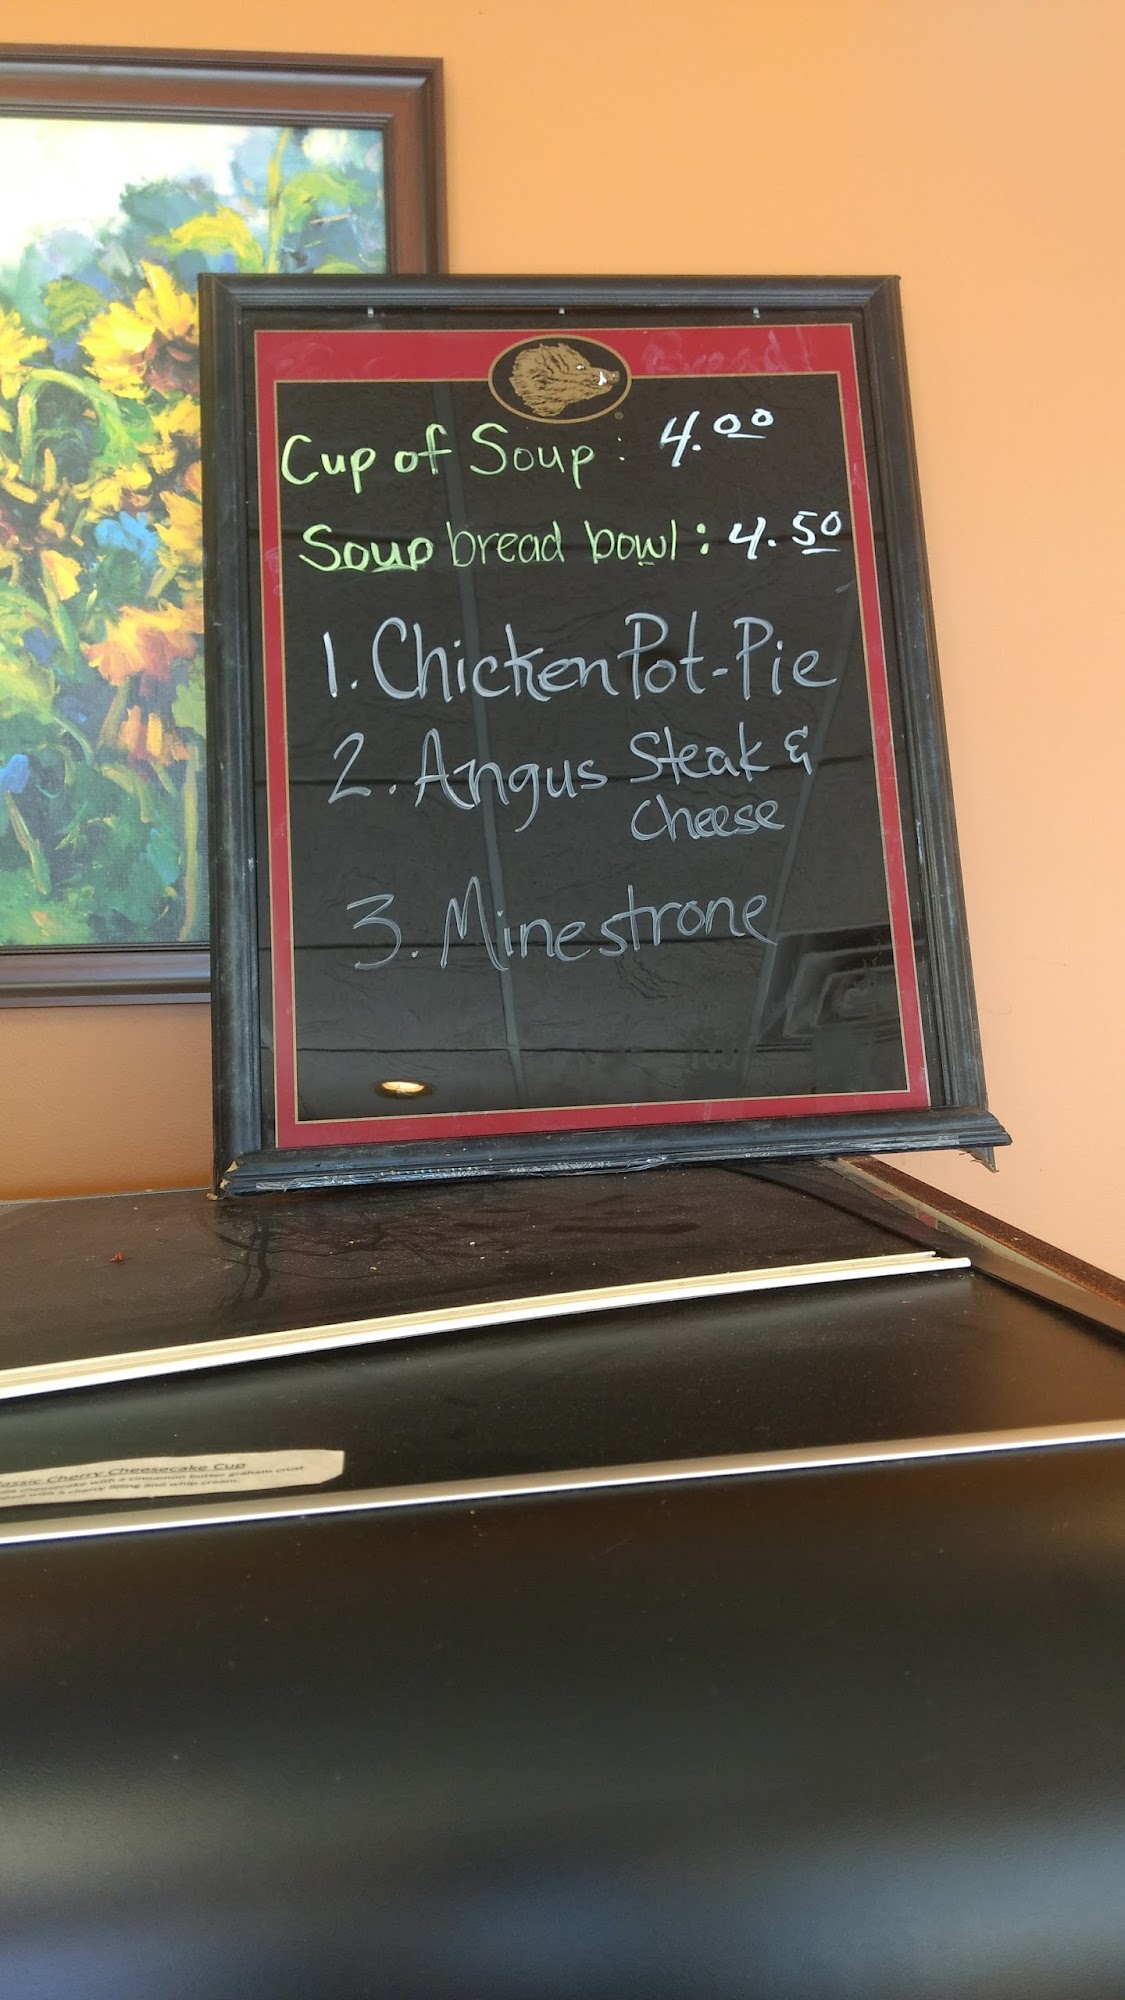 Bread
Cup of Soup: 4.00
Soup bread bowl: 4.50
1. Chicken Pot-Pie
2. Angus Steak &
Cheese
3. Minestrone
Classic Cherry Cheesecake Cup
cheesecake with a cinnamon butter graham crust
with a cherry filling and whip cream.